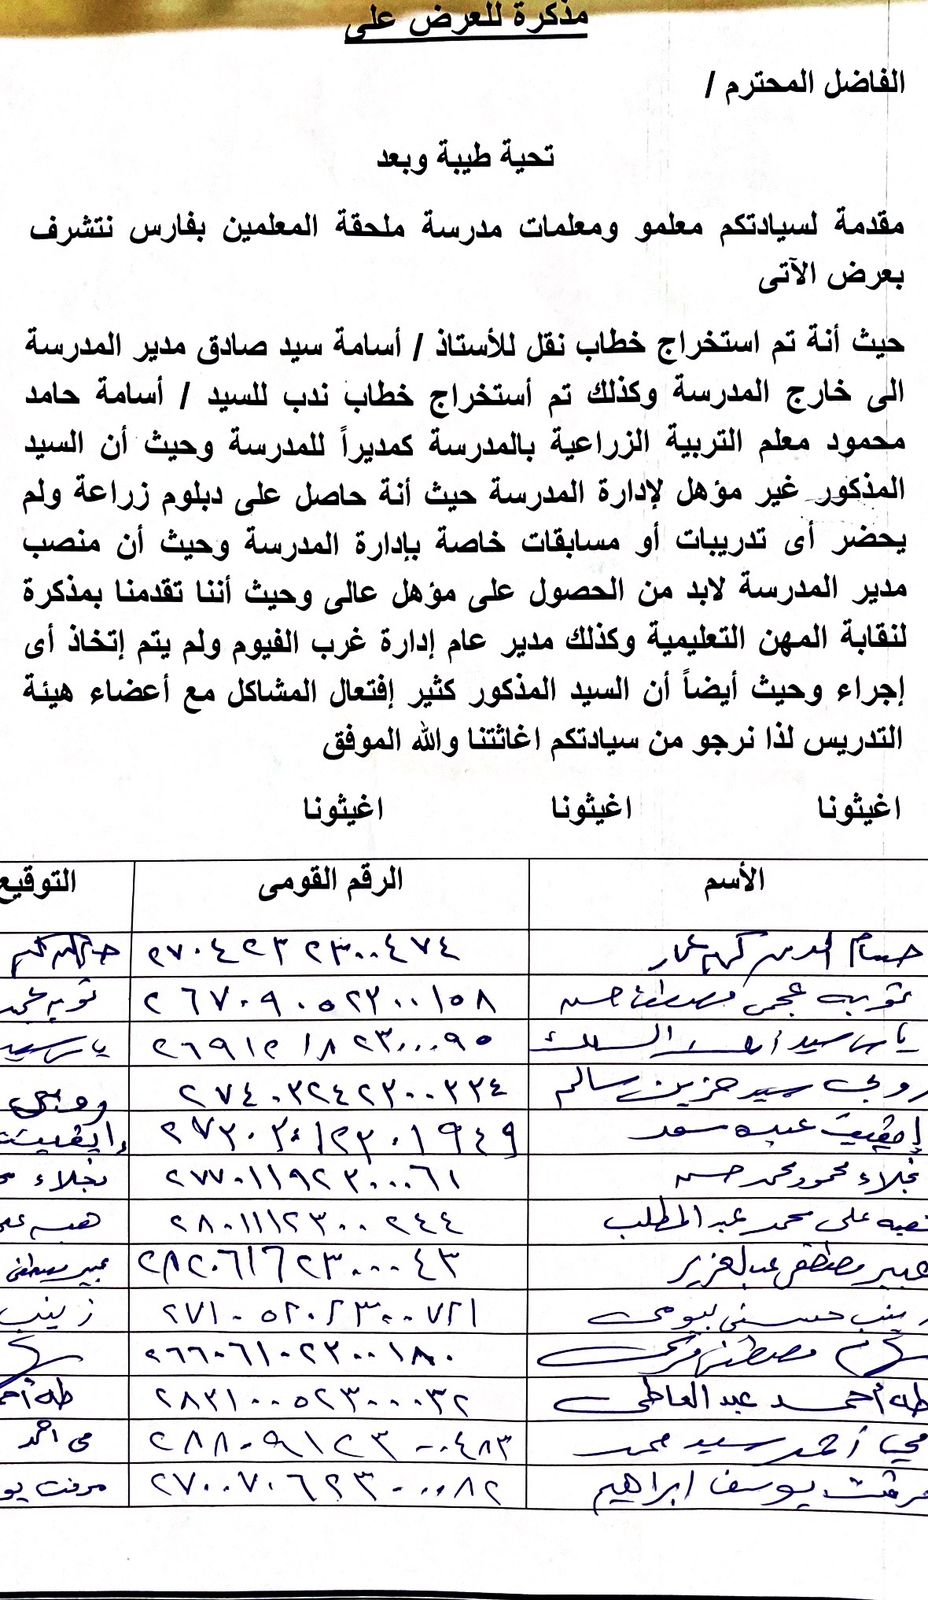 مذكرة للعرض على
الفاضل المحترم /
تحية طيبة وبعد
مقدمة لسيادتكم معلمو ومعلمات مدرسة ملحقة المعلمين بفارس نتشرف
بعرض الآتى
حيث أنة تم استخراج خطاب نقل للأستاذ / أسامة سيد صادق مدير المدرسة
الى خارج المدرسة وكذلك تم أستخراج خطاب ندب للسيد / أسامة حامد
محمود معلم التربية الزراعية بالمدرسة كمديراً للمدرسة وحيث أن السيد
المذكور غير مؤهل لإدارة المدرسة حيث أنة حاصل على دبلوم زراعة ولم
يحضر أى تدريبات أو مسابقات خاصة بإدارة المدرسة وحيث أن منصب
مدير المدرسة لابد من الحصول على مؤهل عالى وحيث أننا تقدمنا بمذكرة
لنقابة المهن التعليمية وكذلك مدير عام إدارة غرب الفيوم ولم يتم إتخاذ أى
إجراء وحيث أيضاً أن السيد المذكور كثير إفتعال المشاكل مع أعضاء هيئة
التدريس لذا نرجو من سيادتكم اغاثتنا والله الموفق
اغيثونا اغيثونا اغيثونا
الأسم الرقم القومى التوقيع
حسام الدين ٢٧٠٤٢٣٢٣٠٠٤٧٤
عجمى مصطفى حسن ٢٦٧٠٩٠٥٢٣٠٠١٥٨
ياسر سيد ٢٦٩١٢١٨٢٣٠٠٠٩٥ ياسر سيد
روبى سيد حزين سالم ٢٧٤٠٣٢٤٢٣٠٠٣٣٤ روبى
عبده سعد
نجلاء محمود محمد حسن ٢٧٧٠١١٩٢٣٠٠٠٦١ نجلاء
على محمد عبد المطلب ٢٨٠١١١٢٣٠٠٢٤٤
عبير مصطفى عبد العزيز ٢٨٢٠٦١٦٢٣٠٠٠٤٣ عبير مصطفى
زينب حسنى بيومى ٢٧١٠٥٢٠٢٣٠٠٧٢١ زينب
مصطفى ٢٦٦٠٦١٠٢٣٠٠١٨٠
طه أحمد عبد العاطى ٢٨٢١٠٠٥٢٣٠٠٠٣٢ طه أحم
أحمد سيد محمد ٢٨٨٠٩١٢٣٠٠٤٨٣ مى احمد
مرفت يوسف ابراهيم ٢٧٠٠٧٠٦٢٣٠٠٠٨٢ مرفت يو